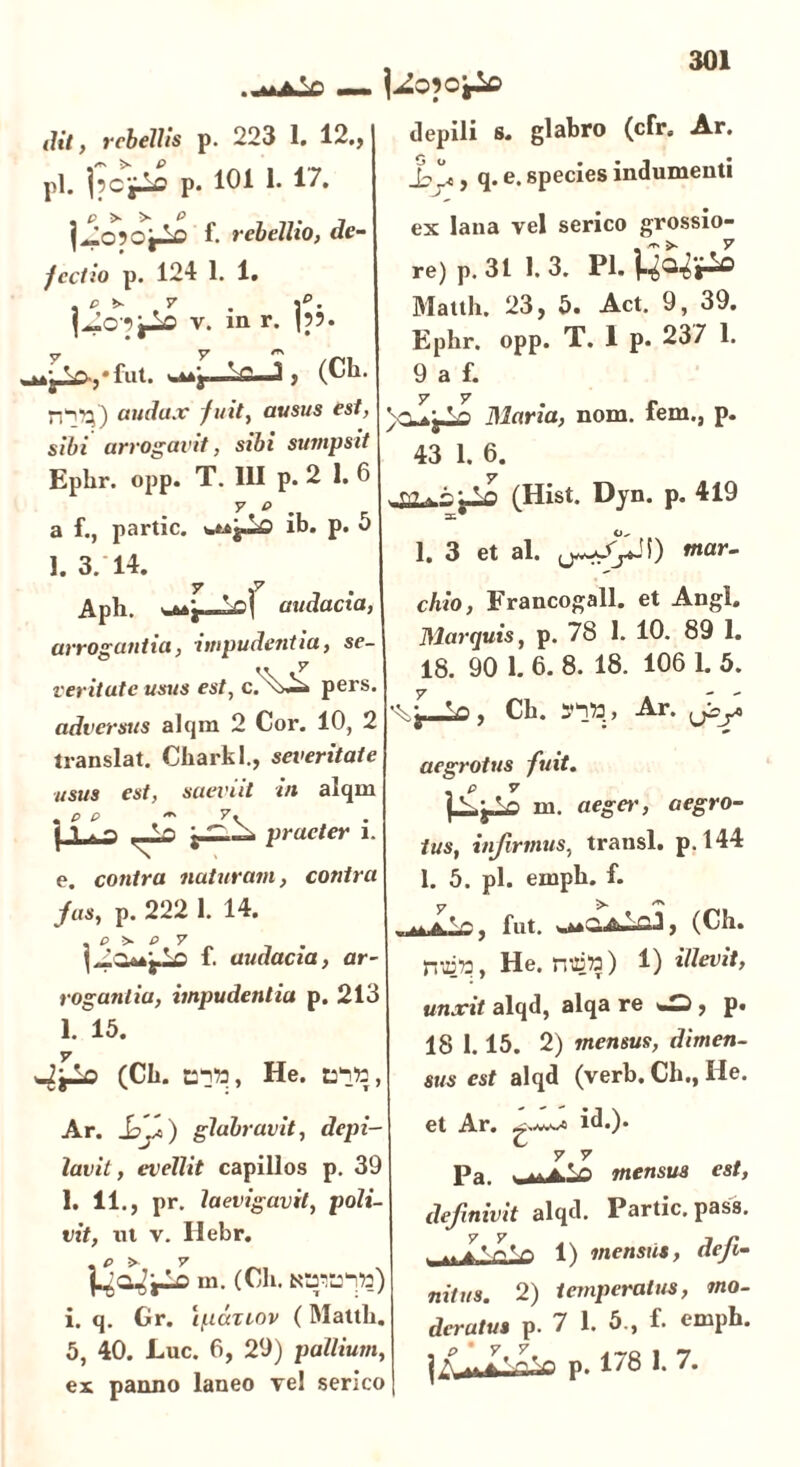 301
.ܡܫܚ — ܡܪܘܕܘܬܐ
dit, rebellis p. 223 l. 12.,
pl. ܡܪ̈ܘܕܐ p. 101 l. 17.
ܡܪܘܕܘܬܐ f. rebellio, de-
fectio p. 124 l. 1.
ܡܪܕܘܬܐ v. in r. ܪܕܐ.
ܡܪܚ,· fut. ܢܡܪܚ, (Ch.
מְרַח) audax fuit, ausus est,
sibi arrogavit, sibi sumpsit
Ephr. opp. T. III p. 2 l. 6
a f., partic. ܡܪܚ ib. p. 5
l. 3. 14.
Aph. ܐܡܪܚ audacia,
arrogantia, impudentia, se-
veritate usus est, c. ܥܠ pers.
adversus alqm 2 Cor. 10, 2
translat. Charkl., severitate
usus est, saeviit in alqm
ܠܒܪ ܡܢ ܟܝܢܐ praeter i.
e. contra naturam, contra
fas, p. 222 l. 14.
ܡܪܚܘܬܐ f. audacia, ar-
rogantia, impudentia p. 213
l. 15.
ܡܪܛ (Ch. מְרַט, He. מָרַט,
Ar. مَرَطَ) glabravit, depi-
lavit, evellit capillos p. 39
l. 11., pr. laevigavit, poli-
vit, ut v. Hebr.
ܡܪܛܘܛܐ m. (Ch. מַרְטוּטָא)
i. q. Gr. ἱμάτιον (Matth.
5, 40. Luc. 6, 29) pallium,
ex panno laneo vel serico
depili s. glabro (cfr. Ar.
مِرْطٌ, q. e. species indumenti
ex lana vel serico grossio-
re) p. 31 l. 3. Pl. ܡܪ̈ܛܘܛܐ
Matth. 23, 5. Act. 9, 39.
Ephr. opp. T. I p. 237 l.
9 a f.
ܡܪܝܡ Maria, nom. fem., p.
43 l. 6.
ܡܪܟܝܣ (Hist. Dyn. p. 419
l. 3 et al. المركيس) mar-
chio, Francogall. et Angl.
Marquis, p. 78 l. 10. 89 l.
18. 90 l. 6. 8. 18. 106 l. 5.
ܡܪܥ, Ch. מְרַע, Ar. مرض
aegrotus fuit.
ܡܪܥܐ m. aeger, aegro-
tus, infirmus, transl. p. 144
l. 5. pl. emph. f.
ܡܫܚ, fut. ܢܡܫܘܚ, (Ch.
מְשַׁח, He. מָשַׁח) 1) illevit,
unxit alqd, alqa re ܒ, p.
18 l. 15. 2) mensus, dimen-
sus est alqd (verb. Ch., He.
et Ar. مَسَحَ id.).
Pa. ܡܫܚ mensus est,
definivit alqd. Partic. pass.
ܡܡܫܚ 1) mensus, defi-
nitus. 2) temperatus, mo-
deratus p. 7 l. 5., f. emph.
ܡܡܫܚܬܐ p. 178 l. 7.